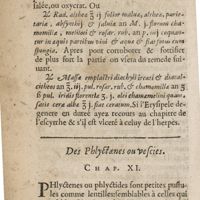 salée, ou oxycrat. Ou
℞ Rad. altheæ ℥ ij folior. maluæ, altheæ, parie-
tariæ, absynthij & saluiæ an. m. j. florum cha-
momillæ, meliloti & rosar. rub. an. p. ij. coquan-
tur in aquæ partibus vini & aquæ fiat
Apres pour corroborer & fortifier
de plus fort la partie on vsera du remede sui-
uant.
℞ Massæ emplastri diachyli & diacal-
citheos an ℥ iij. pul. rosar. rub. & chamomillæ an ʒ
pul. iridis florentiæ ʒ olei chamæmeli quan-
ceræ albæ ℥ j. fiat ceratum. Si l'Erysipele de-
genere en dartre ayez recours au chapitre de
l'escyrrhe & s'il est vlceré à celuy de l'herpes.
Des Phlyctenes ou vescies.
CHAP. XI.
PHlyctenes ou phlyctides sont petites pustu-
les comme lentilles semblables à celles qui